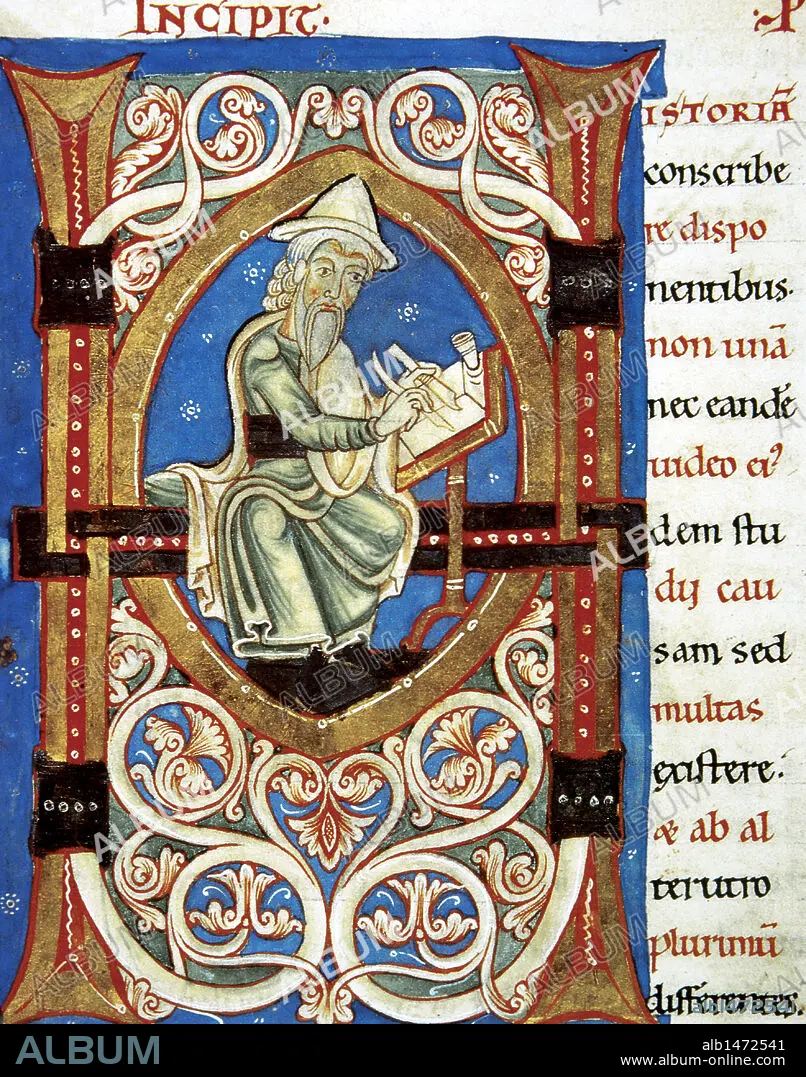 INCIPIT· ·P
ISTORIĀ
conscribe
re dispo
nentibus·
non unā
nec eandē
uideo eiꝰ
dem stu
dij cau
sam sed
multas
existere·
æ ab al
terutro
plurimū
differentes.
ALBUM
alb1472541
www.album-online.com